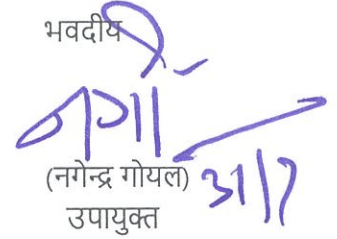 भवदीय
(नगेन्द्र गोयल)
उपायुक्त